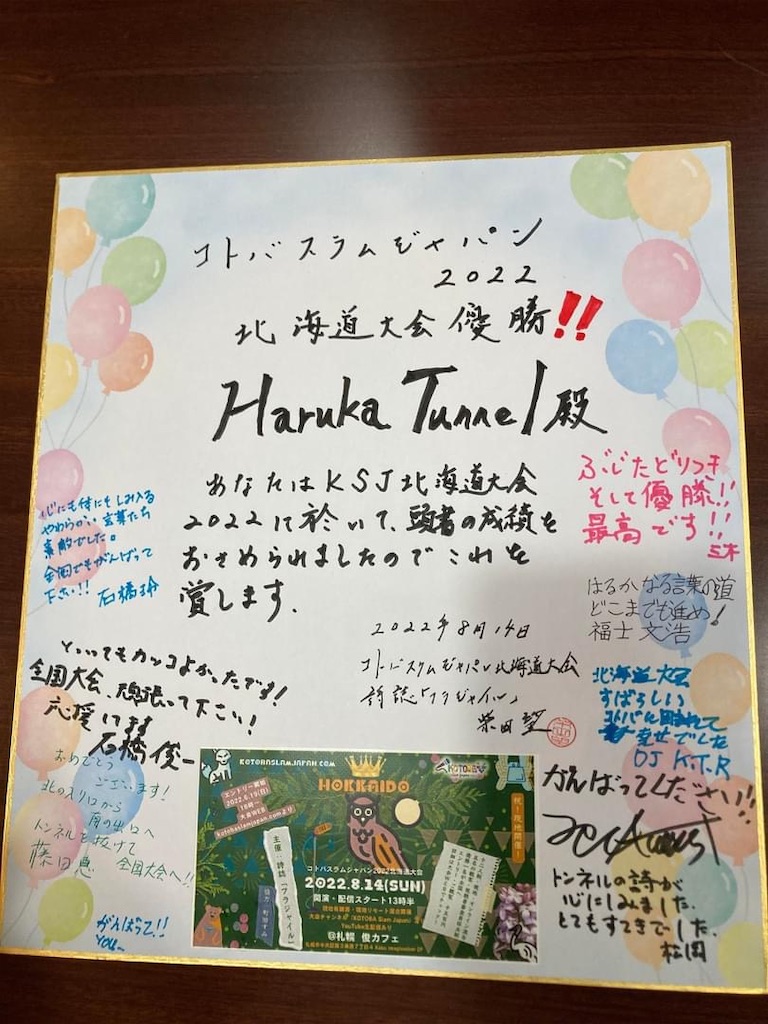 コトバスラムジャパン
2022
北海道大会優勝!!
Haruka Tunnel殿
あなたはKSJ北海道大会
2022に於いて、頭書の成績を
おさめられましたのでこれを
賞します.
2022年8月14日
コトバスラムジャパン北海道大会
詩誌「フラジャイル」
柴田望
心にも体にもしみ入る
やわらかい言葉たち
素敵でした。
全国でもがんばって
下さい!!
石橋玲
とってもカッコよかったです!
全国大会、頑張って下さい!
応援してます
石橋俊一
おめでとう
ございます!
北の入り口から
南の出口へ
トンネルを抜けて
全国大会へ!!
藤田恵
がんばって!!
YOU~
ぶじたどりつき
そして優勝!!
最高です!!
三木
はるかなる言葉の道
どこまでも進め!
福士文浩
北海道大会
すばらしい
コトバに囲まれて
幸せでした
DJ K.T.R
がんばってください!!
トンネルの詩が
心にしみました.
とてもすてきでした.
松岡
KOTOBASLAMJAPAN.COM
HOKKAIDO
エントリー開始
2022.6.19(日)
18時~
大会WEB
kotobaslamjapan.comより
祝!現地開催!
主催:詩誌「フラジャイル」
コトバスラムジャパン2022北海道大会
2022.8.14(SUN)
開演・配信スタート13時半
大会チャンネル(KOTOBA Slam Japan)
YouTube生配信あり
@札幌 俊カフェ